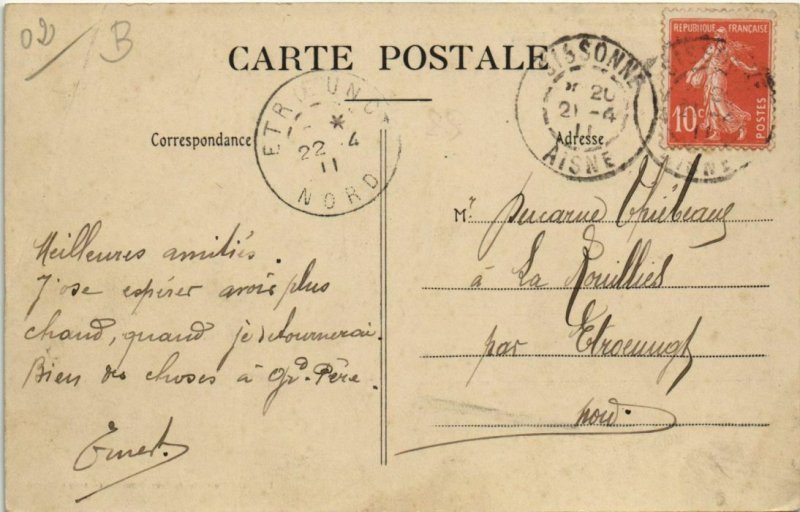 02 / B
CARTE POSTALE
Correspondance
Adresse
ETRŒUNGT
*
22 4
11
NORD
SISSONNE
* 20
21-4
11
AISNE
RÉPUBLIQUE FRANÇAISE
10c
POSTES
AISNE
Meilleures amitiés.
J'ose espérer avoir plus
chaud, quand je retournerai.
Bien des choses à Gd. Père.
Ernest.
Mr Ducarne Thiébeau
à La Rouillies
par Etroeungt
Nord.